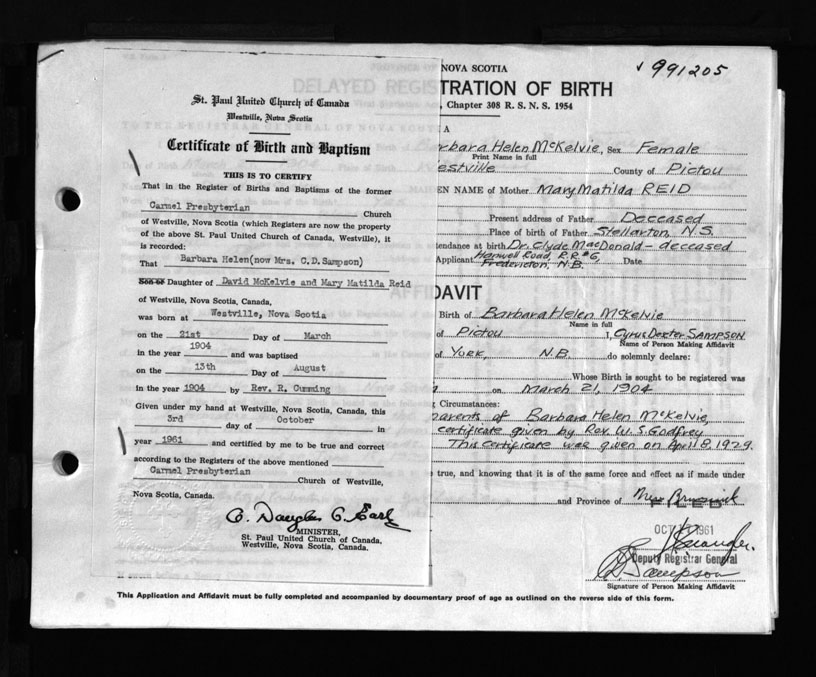 St. Paul United Church of Canada
Westville, Nova Scotia
Certificate of Birth and Baptism
THIS IS TO CERTIFY
That in the Register of Births and Baptisms of the former
Carmel Presbyterian Church
of Westville, Nova Scotia (which Registers are now the property
of the above St. Paul United Church of Canada, Westville), it
is recorded:
That Barbara Helen(now Mrs. C.D.Sampson)
Son or Daughter of David McKelvie and Mary Matilda Reid
of Westville, Nova Scotia, Canada,
was born at Westville, Nova Scotia
on the 21st Day of March
in the year 1904 and was baptised
on the 13th Day of August
in the year 1904 by Rev. R. Cumming
Given under my hand at Westville, Nova Scotia, Canada, this
3rd day of October in
year 1961 and certified by me to be true and correct
according to the Registers of the above mentioned
Carmel Presbyterian Church of Westville,
Nova Scotia, Canada.
MINISTER,
St. Paul United Church of Canada,
Westville, Nova Scotia, Canada.
NOVA SCOTIA
991205
DELAYED REGISTRATION OF BIRTH
, Chapter 308 R. S. N. S. 1954
rbara Helen McKelvie, Sex Female
Print Name in full
estville County of Pictou
EN NAME of Mother Mary Matilda REID
Present address of Father Deceased
Place of birth of Father Stellarton, N.S.
tendance at birth Dr. Clyde MacDonald - deceased
Applicant Hanwell Road, R.R #6, Fredericton, N.B. Date
DAVIT
Birth of Barbara Helen McKelvie
Name in full
of Pictou I, Cyrus Dexter SAMPSON
Name of Person Making Affidavit
of York, N.B. do solemnly declare:
Whose Birth is sought to be registered was
on March 21, 1904
Circumstances:
parents of Barbara Helen McKelvie,
certificate given by Rev. W. S. Godfrey
This certificate was given on April 8, 1929.
true, and knowing that it is of the same force and effect as if made under
and Province of New Brunswick
FILED
OCT 1961
Deputy Registrar General
Sampson
Signature of Person Making Affidavit
This Application and Affidavit must be fully completed and accompanied by documentary proof of age as outlined on the reverse side of this form.